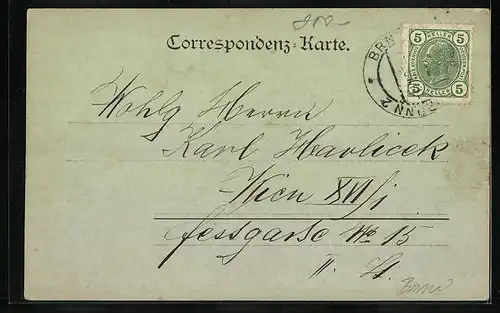 800-
Correspondenz-Karte.
5 HELLER 5
BRN
BRÜNN 2
5 HELLER 5
Wohlg Herrn
Karl Havlicek
Wien XVI/1
fessgasse No 15
II. St.
Brno